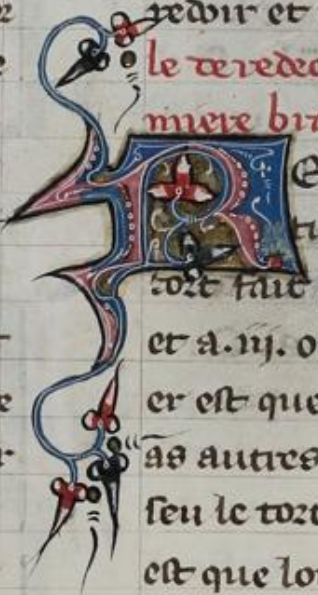 redoir et
le de redec
miere bri
R e
ti
tort fait
et a.iij. o
er est que
as autres
seu le tort
est que lo